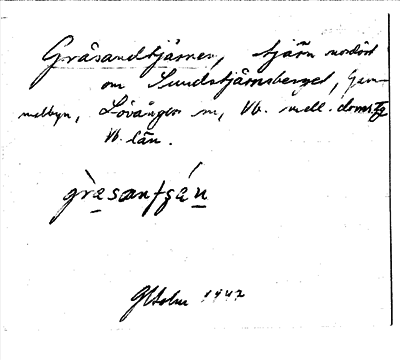 Gråsandtjärnen, tjärn nordöst
om Sundstjärnsberget, Gam-
melbyn, Lövånger sn, Vb. mell. doms.
Vb. län.
gràsantjǽn
GHolm 1947